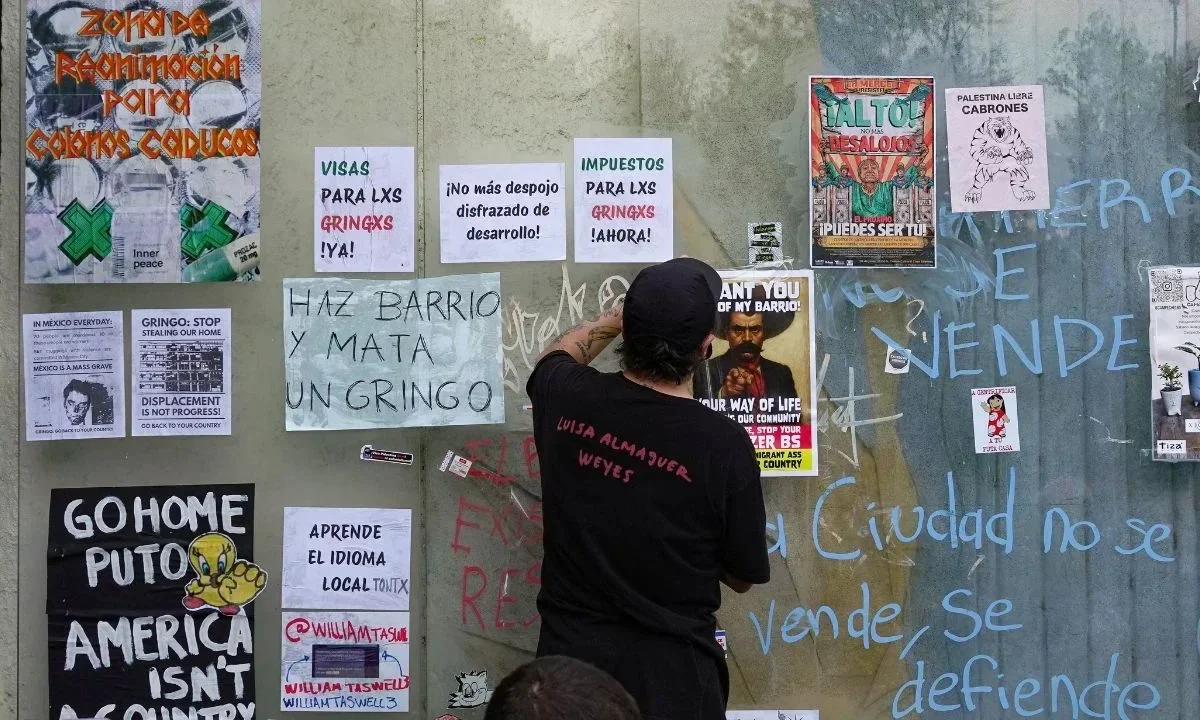 Zona de
Reanimación
para
Colonos Caducos
Inner
peace
PROZAC
20 mg
VISAS
PARA LXS
GRINGXS
!YA!
¡No más despojo
disfrazado de
desarrollo!
IMPUESTOS
PARA LXS
GRINGXS
!AHORA!
¡ALTO!
DESALOJOS
EL PRÓXIMO
¡PUEDES SER TU!
PALESTINA LIBRE
CABRONES
IN MÉXICO EVERYDAY:
MÉXICO IS A MASS GRAVE
GRINGO: GO BACK TO YOUR COUNTRY
GRINGO: STOP
STEALING OUR HOME
DISPLACEMENT
IS NOT PROGRESS!
GO BACK TO YOUR COUNTRY
HAZ BARRIO
Y MATA
UN GRINGO
ANT YOU
OF MY BARRIO!
OUR WAY OF LIFE
OUR COMMUNITY
STOP YOUR
ZER BS
MIGRANT ASS
COUNTRY
LUISA ALMAGUER
WEYES
SE
VENDE
A GENTRIFICAR
A TU
PUTA CASA
Tiza
GO HOME
PUTO
AMERICA
ISN'T
A COUNTRY
APRENDE
EL IDIOMA
LOCAL TONTX
@WILLIAMTASWELL
WILLIAM TASWELL3
WILLIAMTASWELL3
a Ciudad no se
vende, Se
defiende